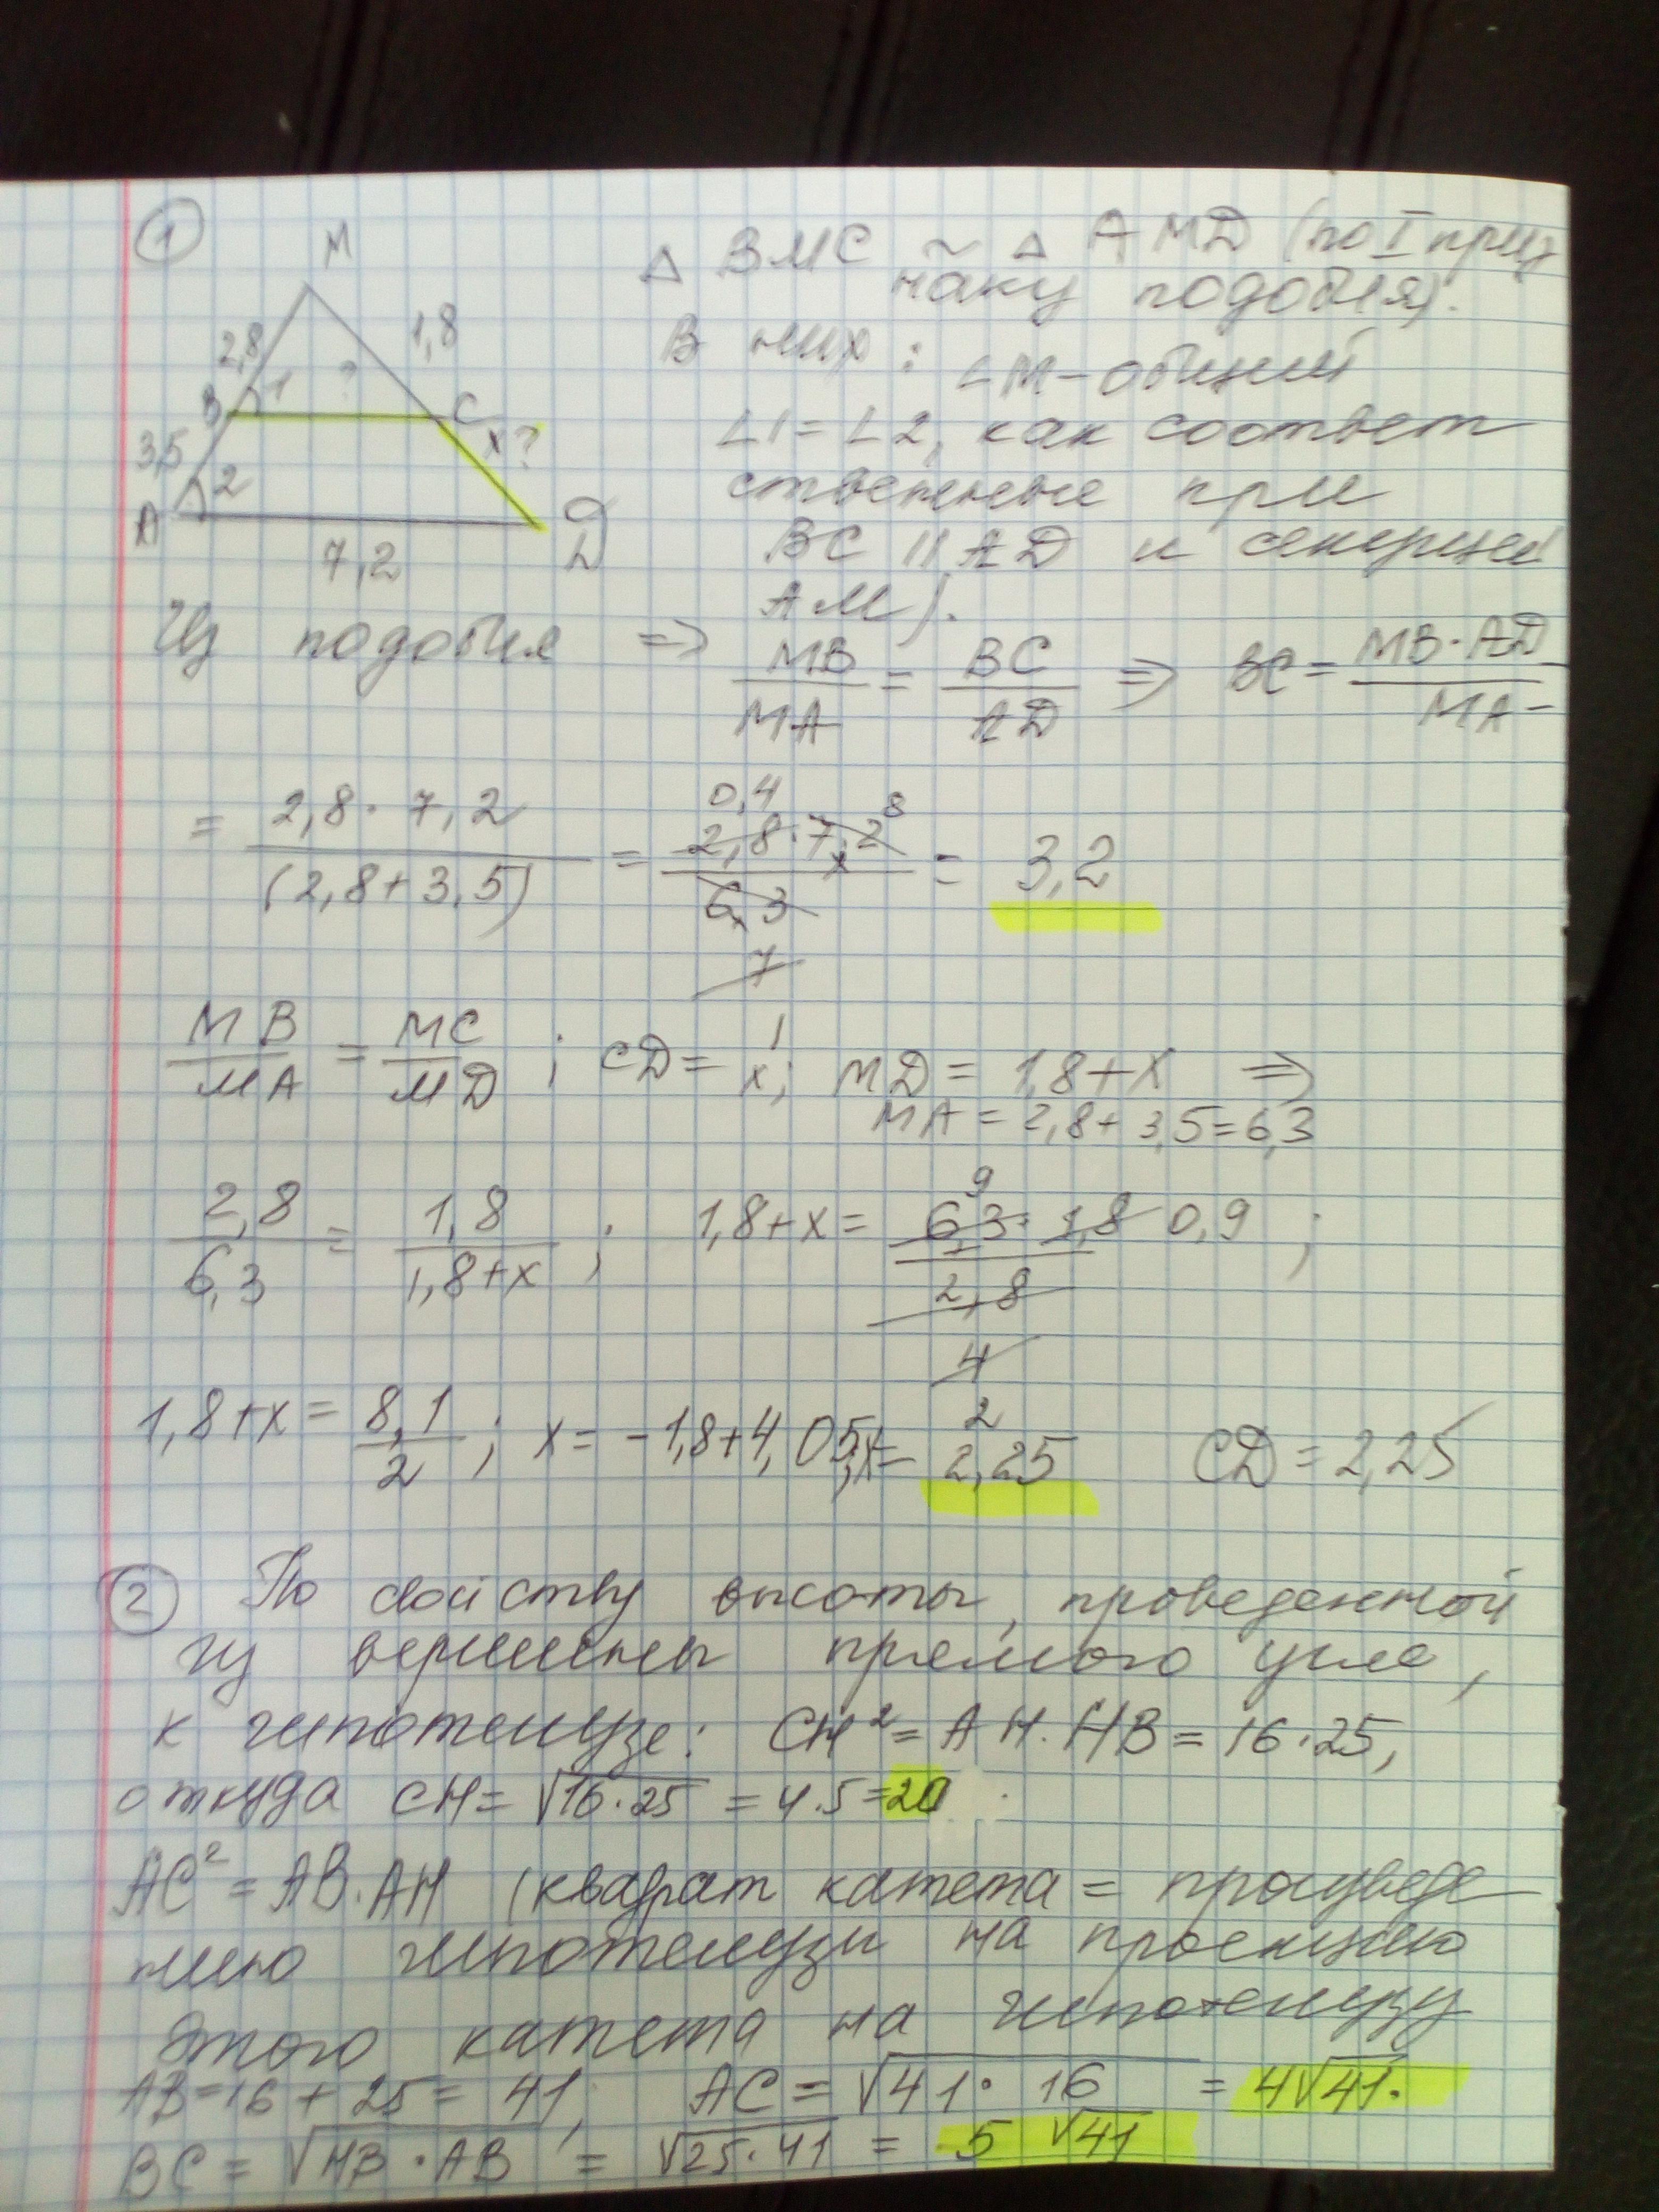 1
M
△ BMC ~ △ AMD (по I приз
наку подобия).
2,8
1,8
В них: ∠M - общий
?
B
1
C
x?
∠1 = ∠2, как соответ
3,5
2
ственные при
A
D
BC || AD и секущей
7,2
AM).
Из подобия => MB/MA = BC/AD => BC = MB · AD/MA =
= 2,8 · 7,2/(2,8+3,5) = 0,4 2,8 · 7,2 8/6,3 7 = 3,2
MB/MA = MC/MD ; CD = x; MD = 1,8+x =>
MA = 2,8+3,5=6,3
2,8/6,3 = 1,8/1,8+x ; 1,8+x = 9 6,3 · 1,8 0,9/2,8 4 2 ;
1,8+x = 8,1/2 ; x = -1,8+4,05; x= 2,25 CD = 2,25
2 По свойству высоты, проведенной
из вершины прямого угла,
к гипотенузе: CH² = AH · HB = 16·25,
откуда CH = √16·25 = 4·5=20
AC² = AB·AH (квадрат катета = произведе
нию гипотенузы на проекцию
этого катета на гипотенузу
AB = 16 + 25 = 41, AC = √41 · 16 = 4√41.
BC = √HB · AB = √25·41 = 5 √41